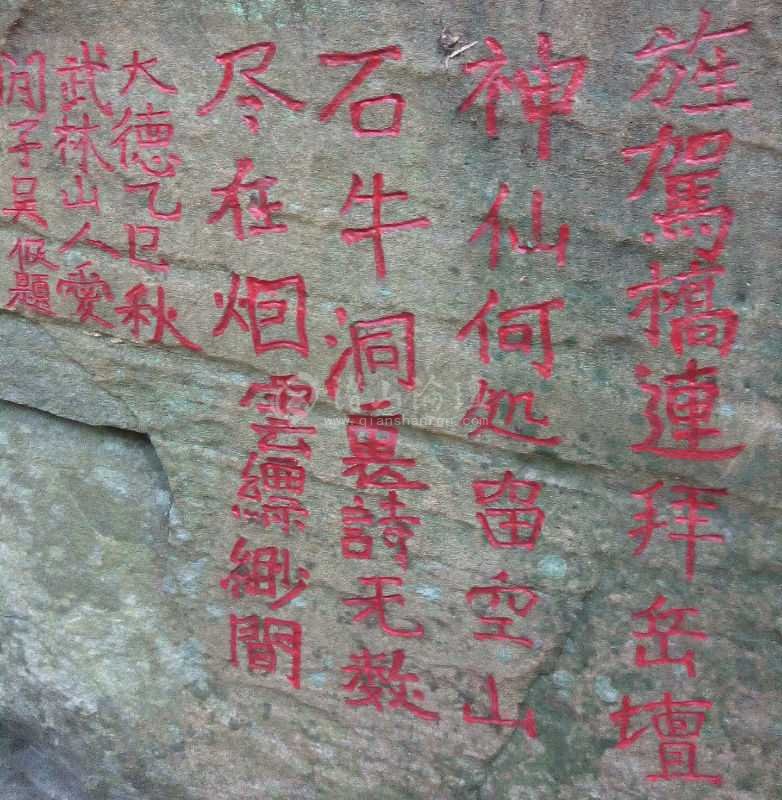 旌駕橋連拜岳壇
神仙何処畱空山
石牛洞裏詩无數
尽在烟雲縹緲間
大德乙巳秋
武林山人愛
閒子吴假題
www.qianshanren.com